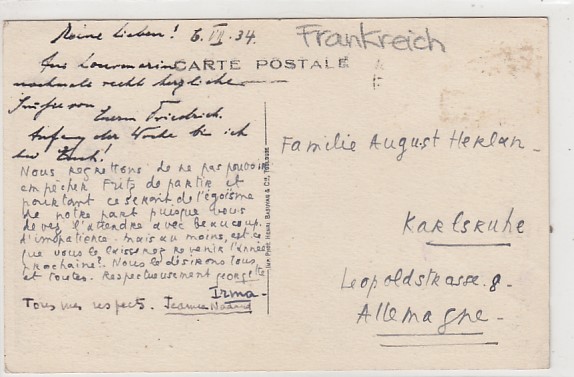 Meine Lieben! 6. VII. 34.
Frankreich
CARTE POSTALE
Aus Lourmarin
nochmals recht herzliche
Grüße von
Eurem Friedrich.
Anfang der Woche bin ich
bei Euch!
Nous regrettons de ne pas pouvoir
empêcher Fritz de partir et
pourtant ce serait de l'égoïsme
de notre part puisque vous
devez l'attendre avec beaucoup
d'impatience. mais au moins, est-ce
que vous le laisserez revenir l'année
prochaine? Nous le désirons tous
et toutes. Respectueusement georgette
Irma -
Tous mes respects. Jeanne
Imp. Phot. Henri Basuyau & Cie, Toulouse
Familie August Herlan -
Karlsruhe
Leopoldstrasse. 8.
Allemagne -